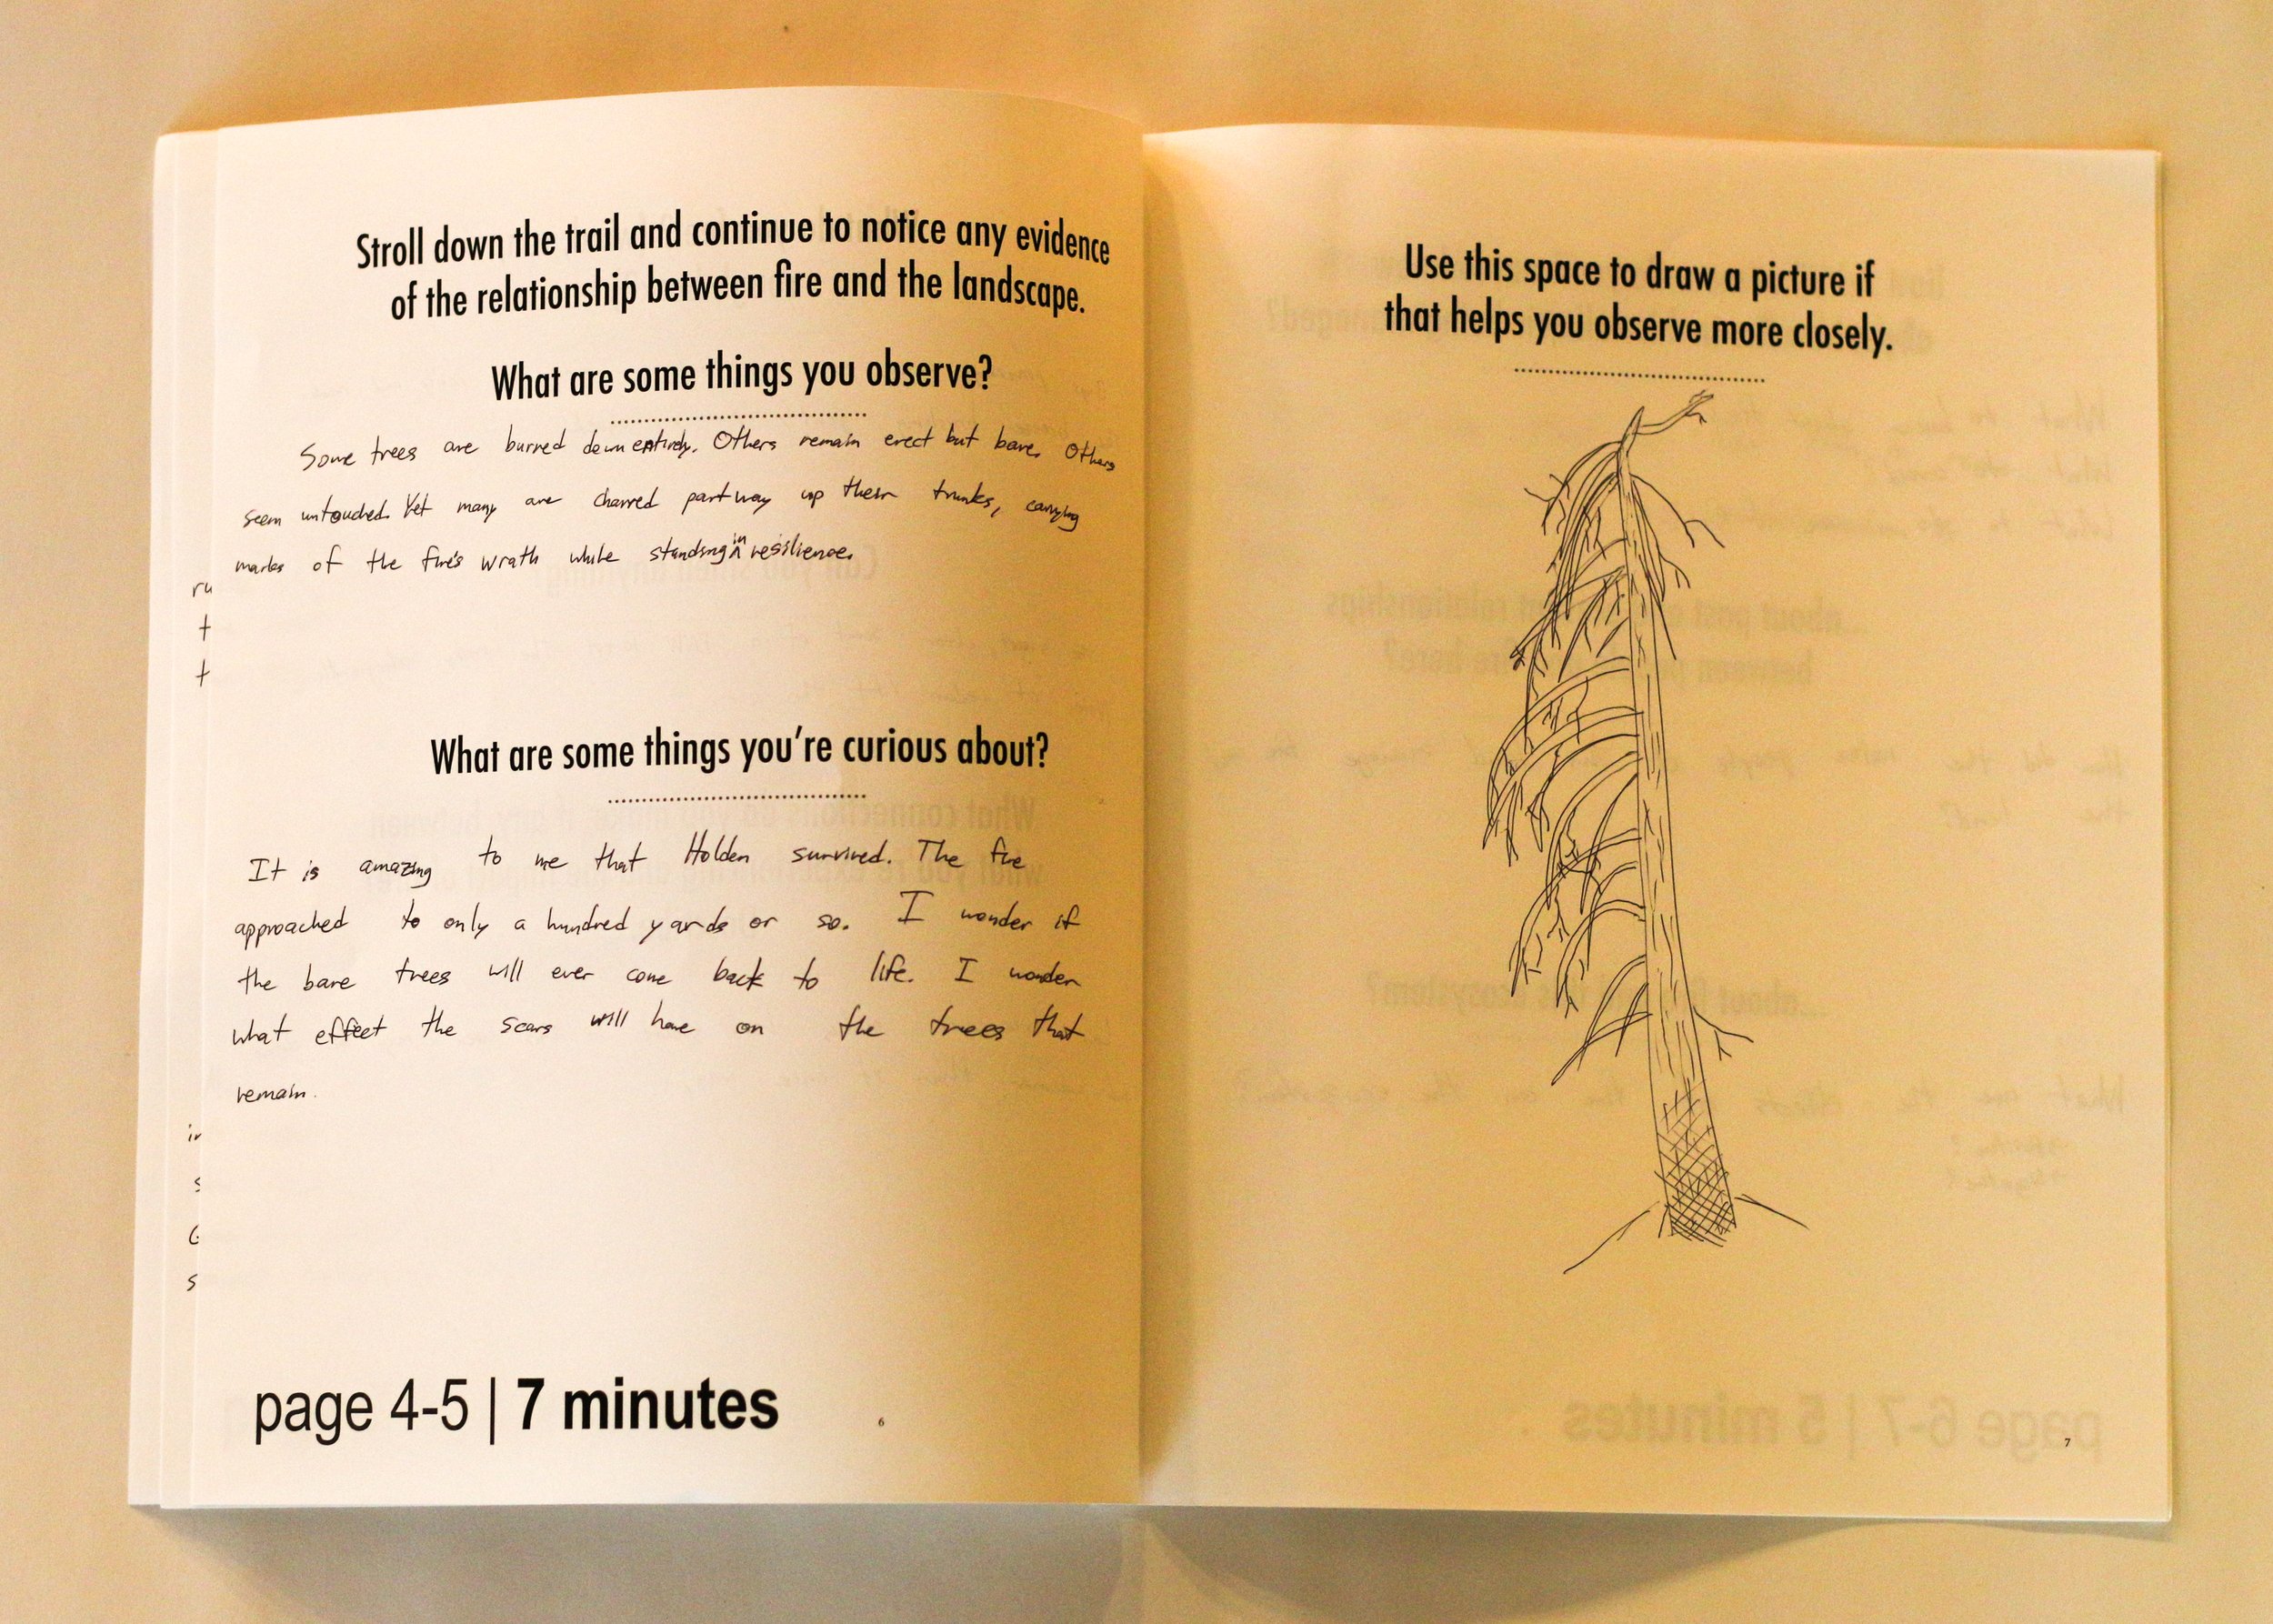 Stroll down the trail and continue to notice any evidence
of the relationship between fire and the landscape.
What are some things you observe?
Some trees are burned down entirely. Others remain erect but bare. Others
seem untouched. Yet many are charred partway up their trunks, carrying
marks of the fire's wrath while standing in resilience.
ru
t
t
What are some things you're curious about?
It is amazing to me that Holden survived. The fire
approached to only a hundred yards or so. I wonder if
the bare trees will ever come back to life. I wonder
what effect the scars will have on the trees that
remain.
in
s
G
s
page 4-5 | 7 minutes
6
Use this space to draw a picture if
that helps you observe more closely.
page 6-7 | 5 minutes
7